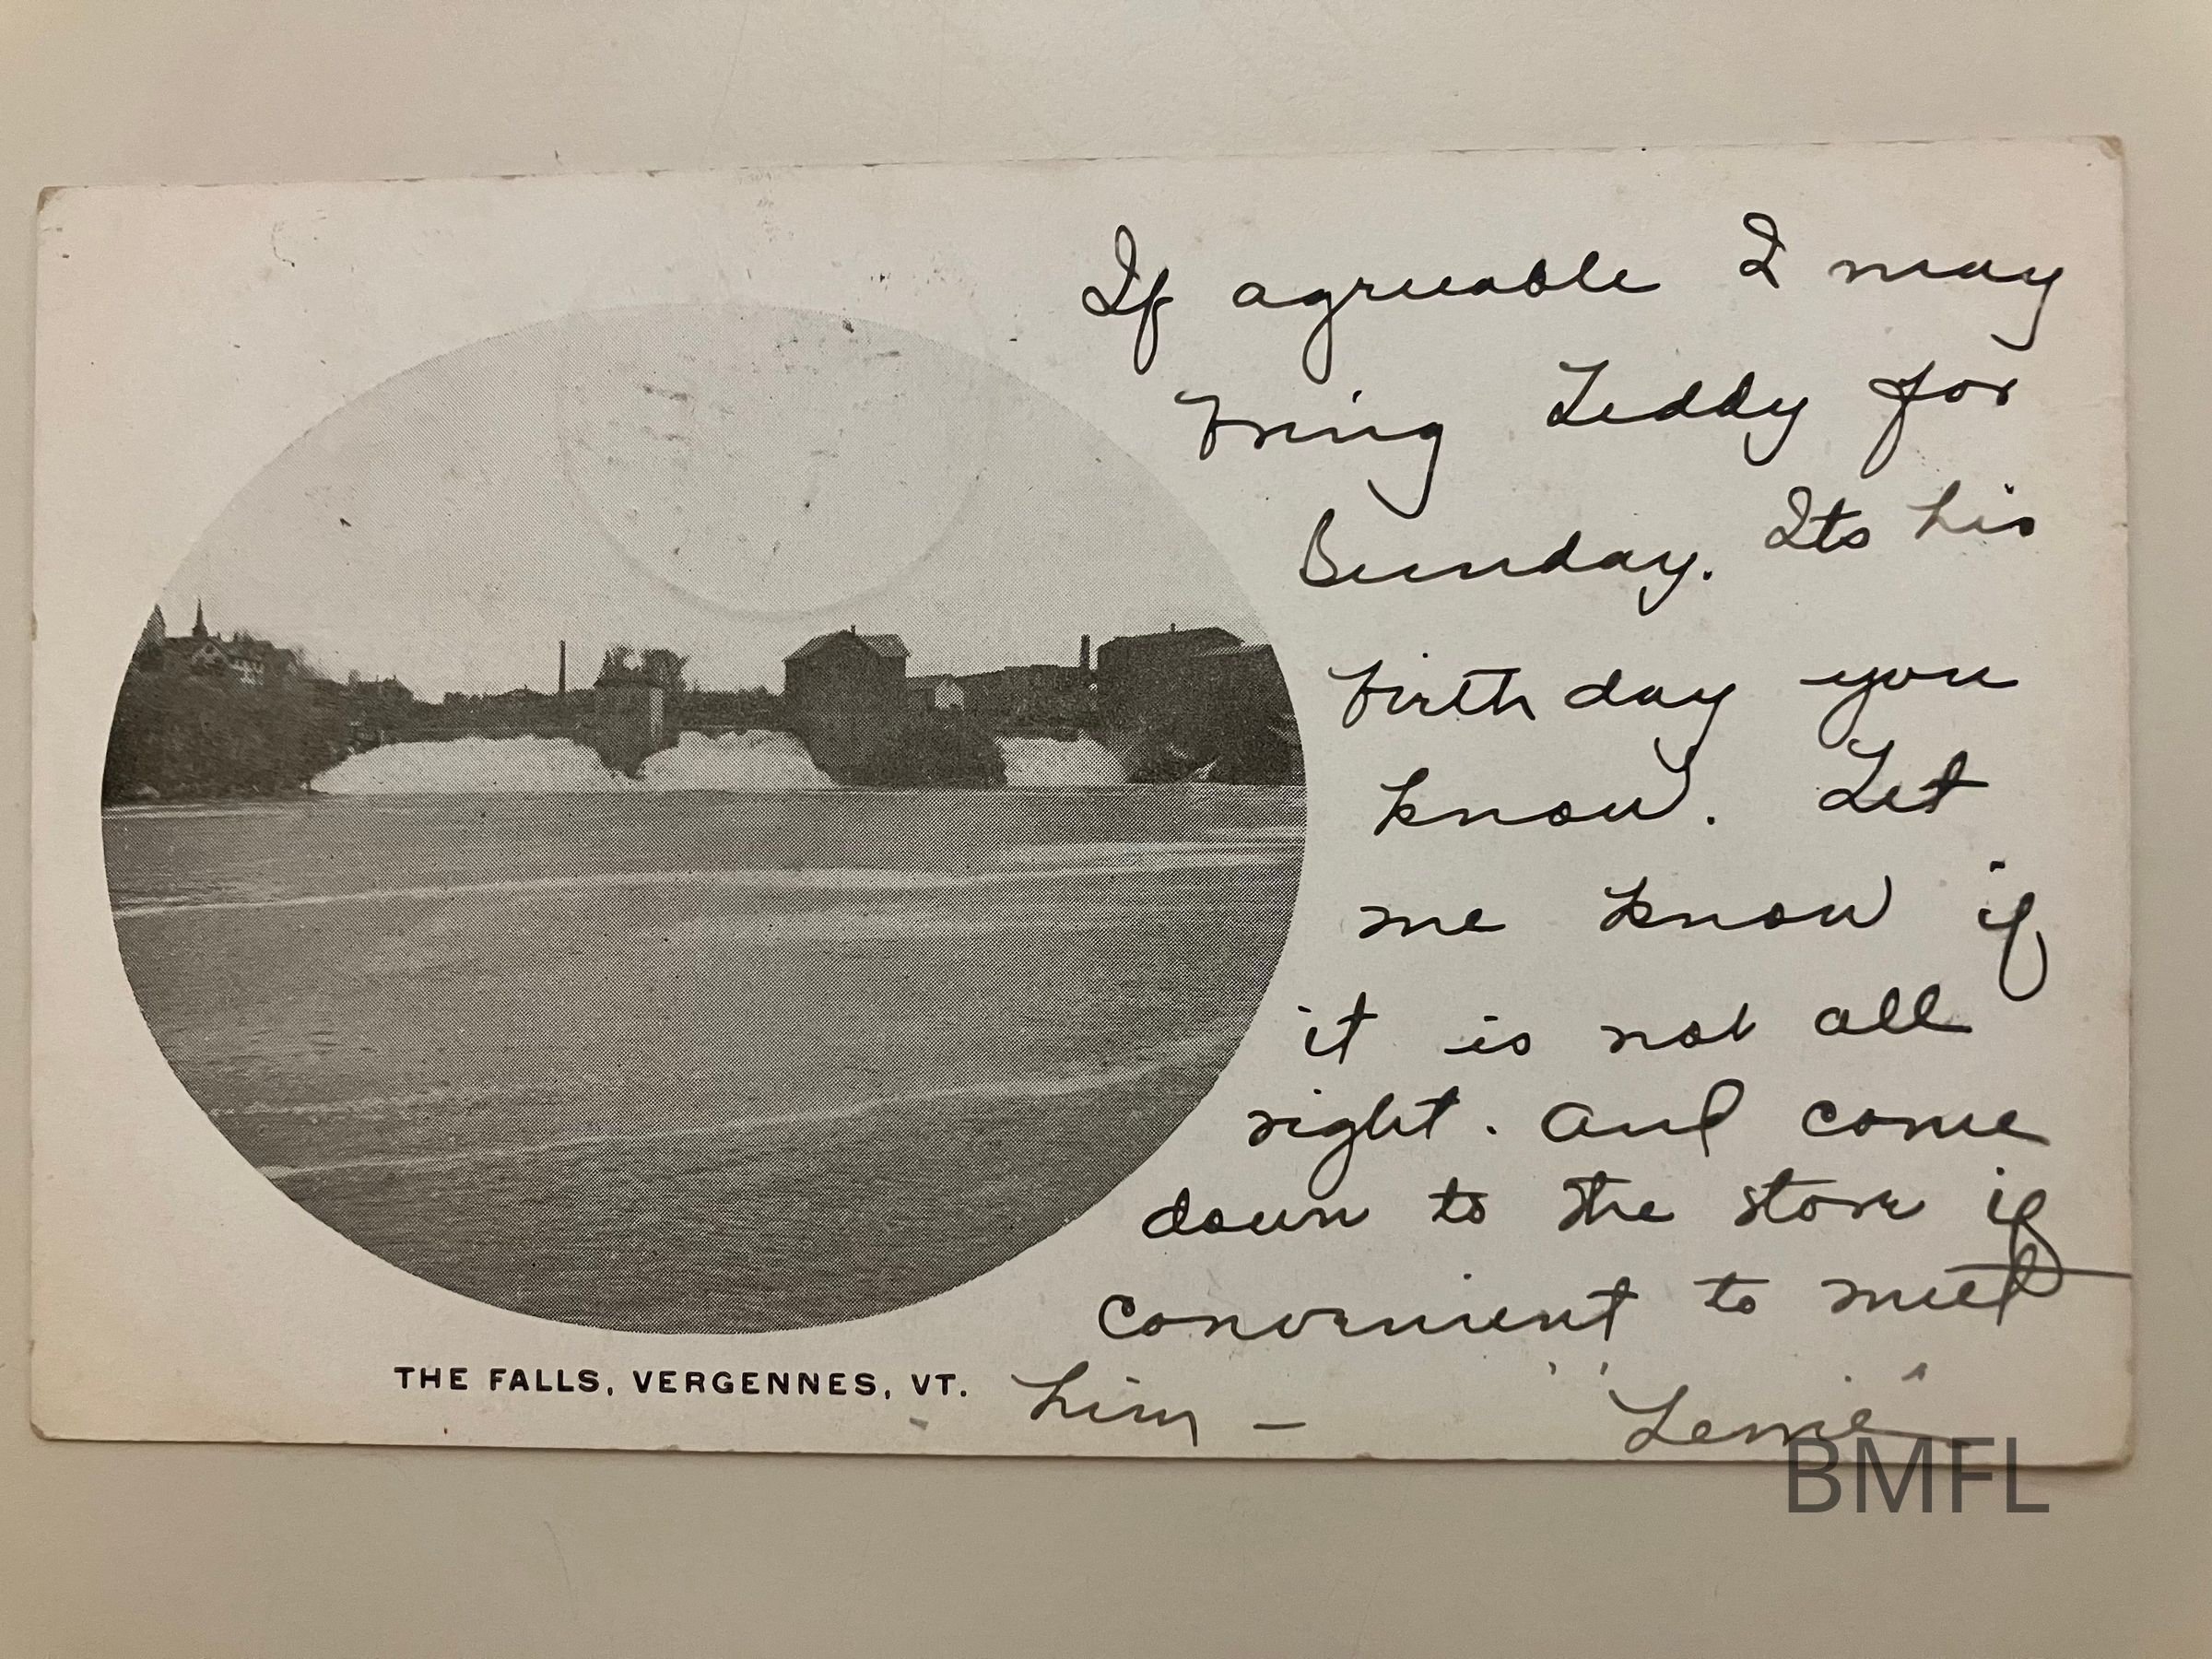 If agreeable I may
bring Teddy for
Sunday. Its his
birth day you
know. Let
me know if
it is not all
right. And come
down to the store if
convenient to meet
him –
THE FALLS, VERGENNES, VT.
BMFL